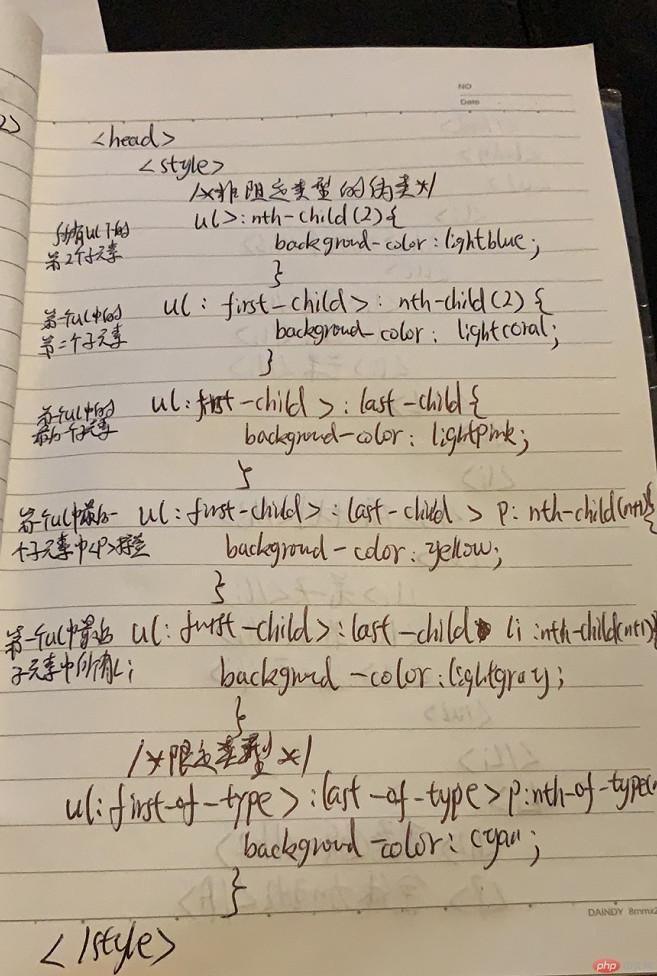 NO
Date
2)
<head>
<style>
/*非限定类型的伪类*/
所有ul下的
第2个子元素
ul>:nth-child(2){
backgroud-color:lightblue;
}
第一个ul中的
第二个子元素
ul:first-child>:nth-child(2){
backgroud-color: lightcoral;
}
第一个ul中的
最后一个子元素
ul:first-child>:last-child{
backgroud-color: lightpink;
}
第一个ul中最后一
个子元素中<p>标签
ul:first-child>:last-child > p:nth-child(n+1){
backgroud-color:yellow;
}
第一个ul中最后
子元素中所有li
ul:first-child>:last-child li:nth-child(n+1){
backgroud-color:lightgray;
}
/*限定类型*/
ul:first-of-type>:last-of-type>p:nth-of-type(
backgroud-color: cyan;
}
</style>
DAINDY 8mmx2
php